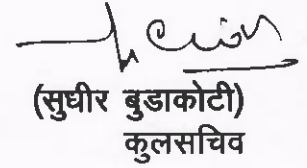 (सुधीर बुडाकोटी)
कुलसचिव